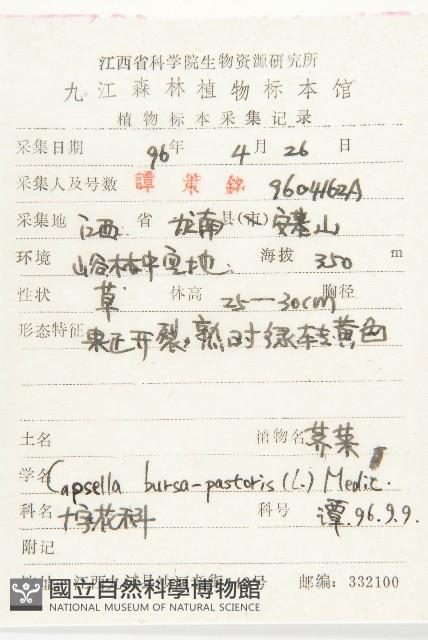 江西省科学院生物资源研究所
九江森林植物标本馆
植物标本采集记录
采集日期 96年 4月26日
采集人及号数 譚策銘 9604162A
采集地 江西省 龙南县(市)安基山
环境 山谷林中空地、 海拔 350 m
性状 草 体高 25—30cm 胸径
形态特征 果正开裂,熟时绿转黄色
土名 植物名 荠菜
学名 Capsella bursa-pastoris (L.) Medic.
科名 十字花科 科号 谭.96.9.9.
附记
号 邮编:332100
國立自然科學博物館
NATIONAL MUSEUM OF NATURAL SCIENCE